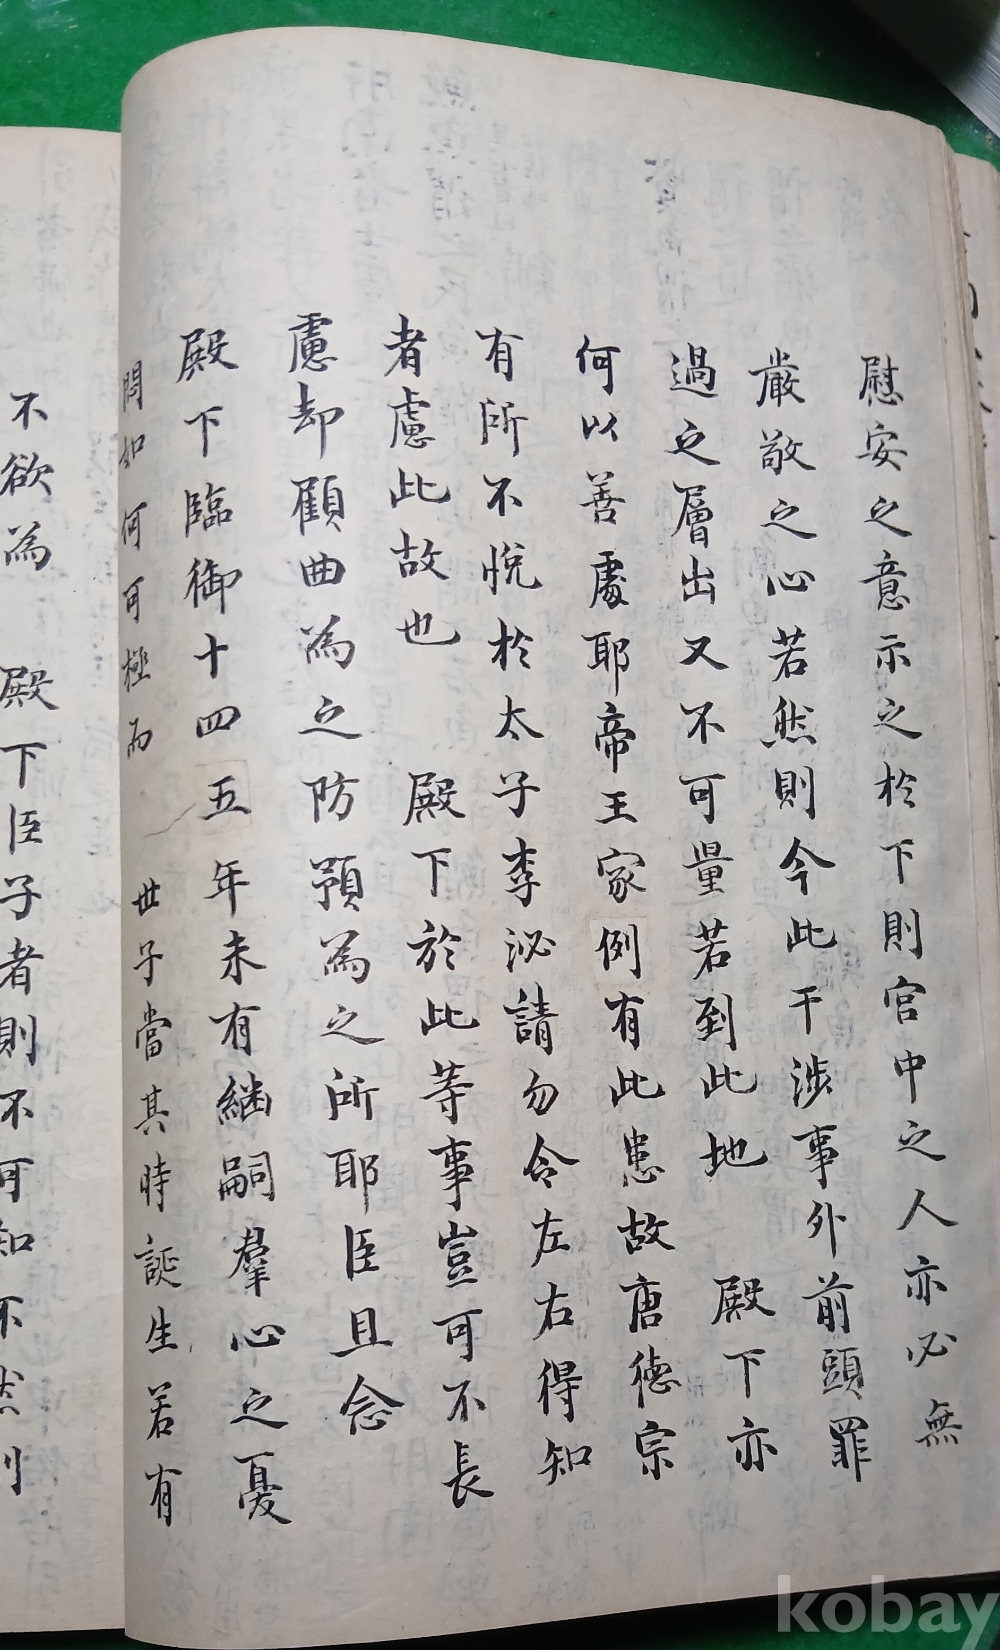 慰安之意示之於下則宮中之人亦必無
嚴敬之心若然則今此干涉事外前頭罪
過之層出又不可量若到此地 殿下亦
何以善處耶帝王家例有此患故唐德宗
有所不悅於太子李泌請勿令左右得知
者慮此故也 殿下於此等事豈可不長
慮却顧曲為之防預為之所耶臣且念
殿下臨御十四五年未有継嗣羣心之憂
悶如何可極而 世子當其時誕生若有
不欲為 殿下臣子者則不可知不然則
kobay